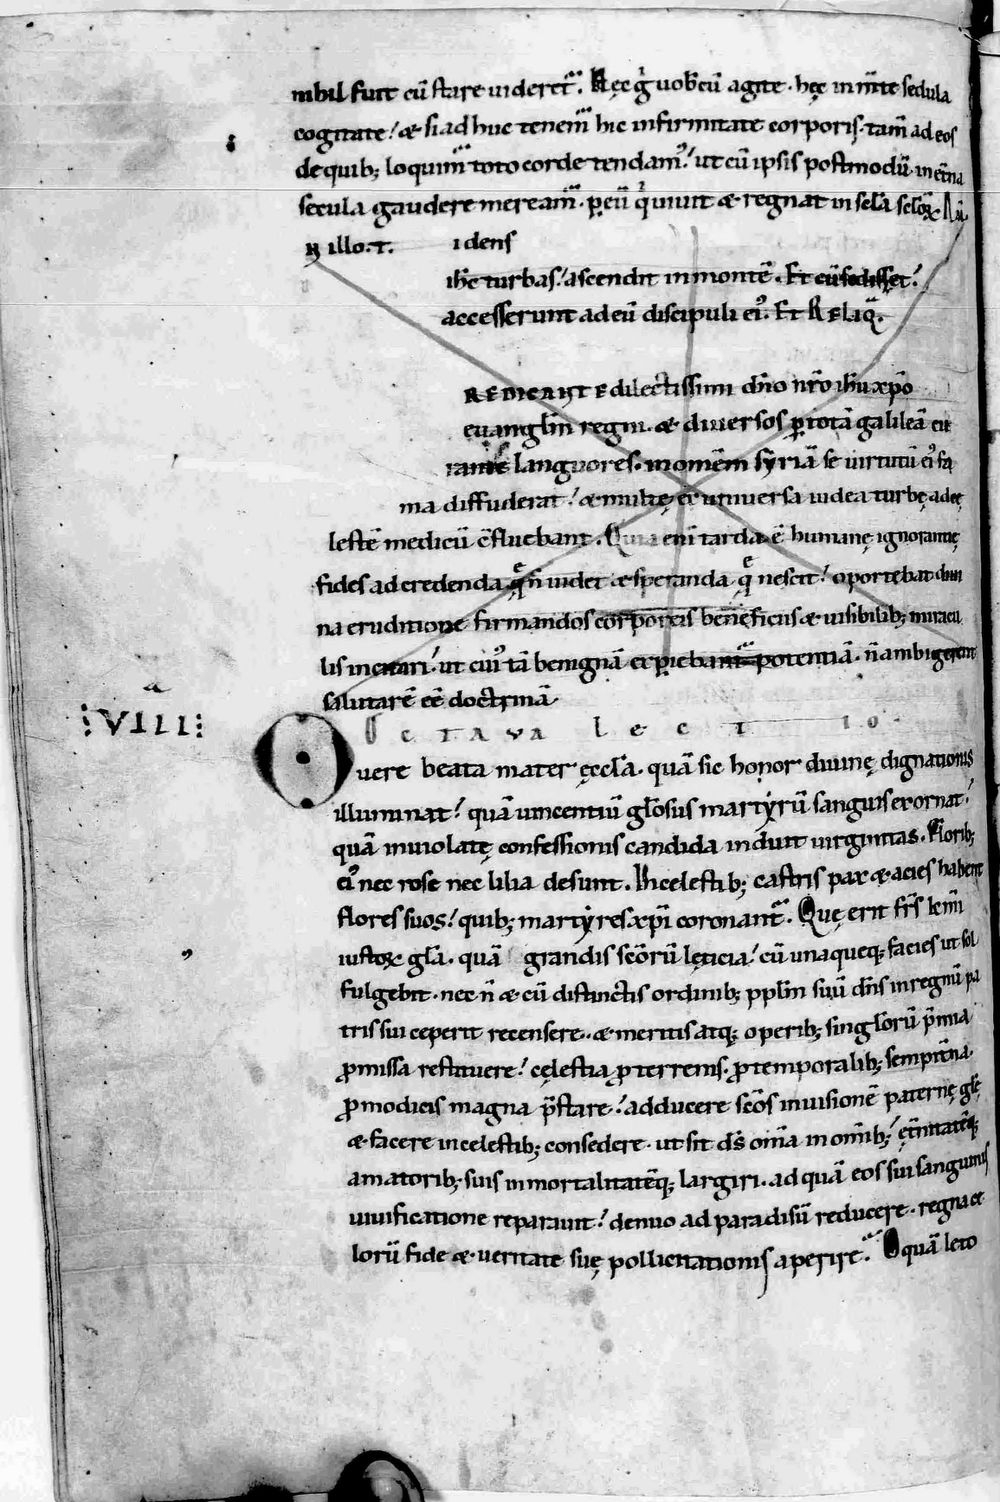 nihil fuit cū stare uideret᷑. Hęc g̊ uob̄cū agite. hęc in m̄te sedula
cogitate! & si ad huc tenem᷑ hic infirmitate corporis. tam̄ ad eos
de quib; loquim᷑ toto corde tendam᷒! ut cū ipsis postmodū. in et̄na
secula gaudere meream᷑. p̱ eū q̇ uiuit & regnat in scl̄a scl̄oꝝ Am̄
IN illo. t. idens
ih̄c turbas! ascendit in montē. Et cū sedisset!
accesserunt ad eū discipuli ei᷒. Et RELIQ̄.
REDICANTE dilectissimi dn̄o nr̄o ih̄u xp̄o
euangl̄m regni. & diuersos p̱ totā galileā cu
rante languores. in om̄em syriā se uirtutū ei᷒ fa
ma diffuderat! & multę ex uniuersa iudea turbę ad cę
lestē medicū c̄fluebant. Quia eni tarda ē humanę ignorantię
fides ad credenda quę n̄ uidet & speranda quę nescit! oportebat diui
na eruditione firmandos corporeis beneficiis & uisibilib; miracu
lis incitari! ut cui᷒ tā benignā exp̱iebant᷑ potentiā. n̄ ambigerent
salutarē eē doctrinā.
: VIII :
OCTAVA LECTIO.
O uere beata mater ęccl̄a. quā sic honor diuinę dignationis
illuminat! quā uincentiū gl̄osus martyrū sanguis exornat!
quā inuiolatę confessionis candida induit uirginitas. Florib;
ei᷒ nec rose nec lilia desunt. In celestib; castris pax & acies habent
flores suos! quib; martyres xp̄i coronant᷑. Quę erit fr̄s km̄i
iustoꝝ gl̄a. quā grandis sc̄orū lęticia! cū unaqueq; facies ut sol
fulgebit. nec n̄ & cū distinctis ordinib; ppl̄m suū dn̄s in regnū pa
tris sui ceperit recensere. & meritis atq; operib; singl̄orū p̄mia
ꝓmissa restituere! cęlestia ꝓ terrenis. ꝓ temporalib; sempit̄na.
ꝓ modicis magna p̄stare! adducere sc̄os in uisionē paternę gl̄ę
& facere in celestib; consedere. ut sit ds̄ om̄ia in om̄ib;! ęt̄nitatēq;
amatorib; suis inmortalitatēq; largiri. ad quā eos sui sanguinis
uiuificatione reparauit! denuo ad paradisū reducere. regna ce
lorū fide & ueritate suę pollicitationis aperire᷑. O quā leto